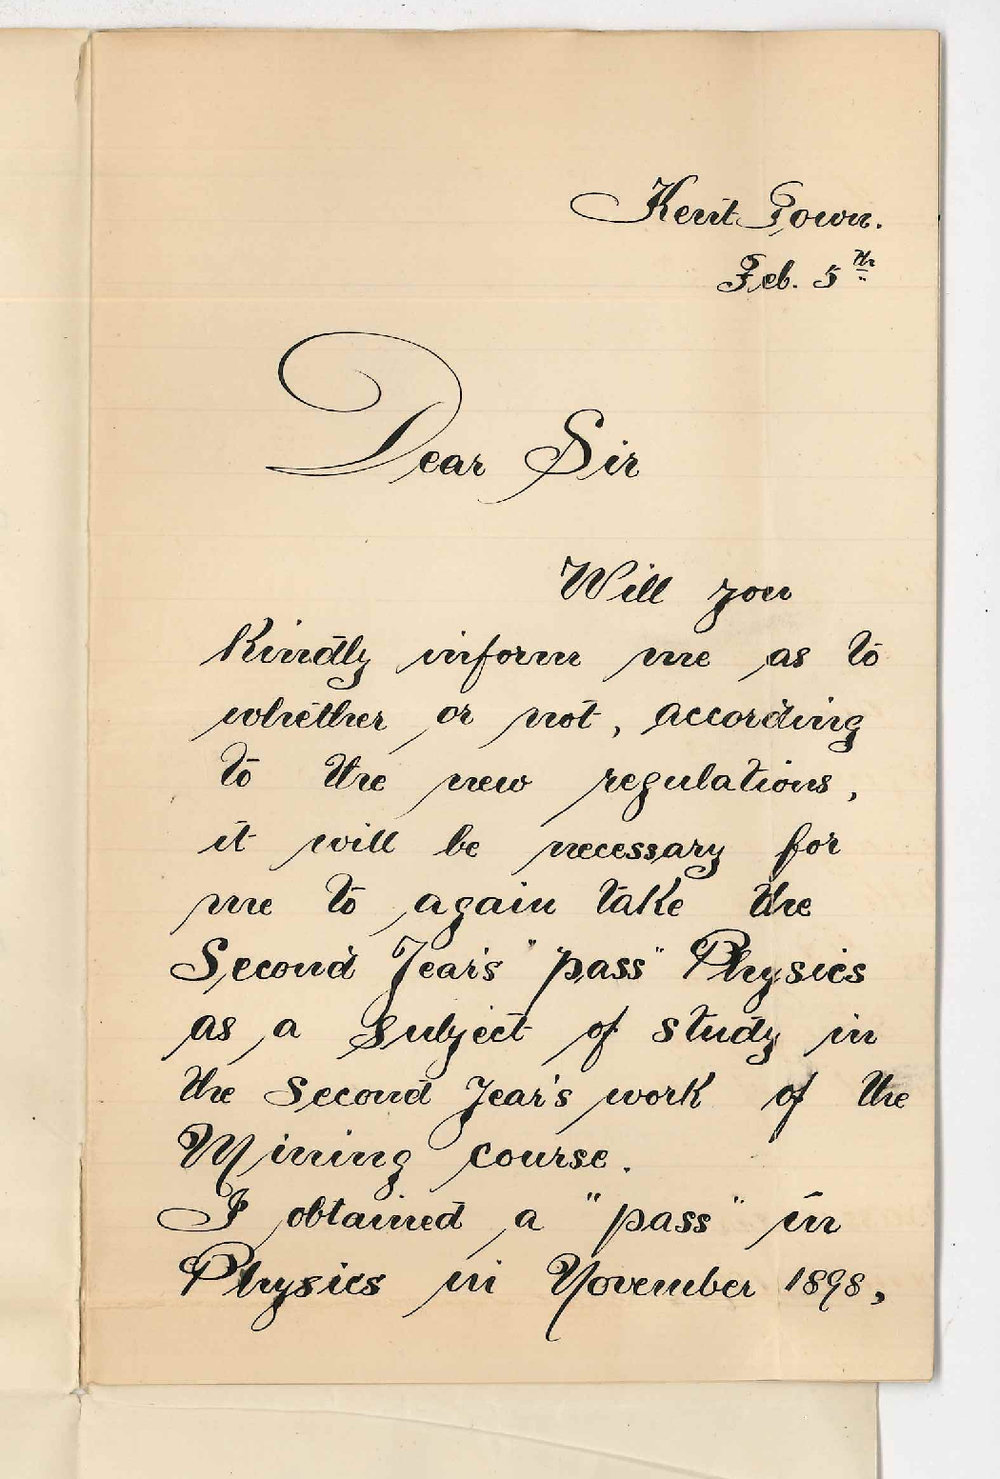 Kent Town.
Feb. 5th
Dear Sir
Will you
Kindly inform me as to
whether or not, according
to the new regulations,
it will be necessary for
me to again take the
Second Year's "pass" Physics
as a subject of study in
the Second Year's work of the
Mining course.
I obtained a "pass" in
Physics in November 1898,